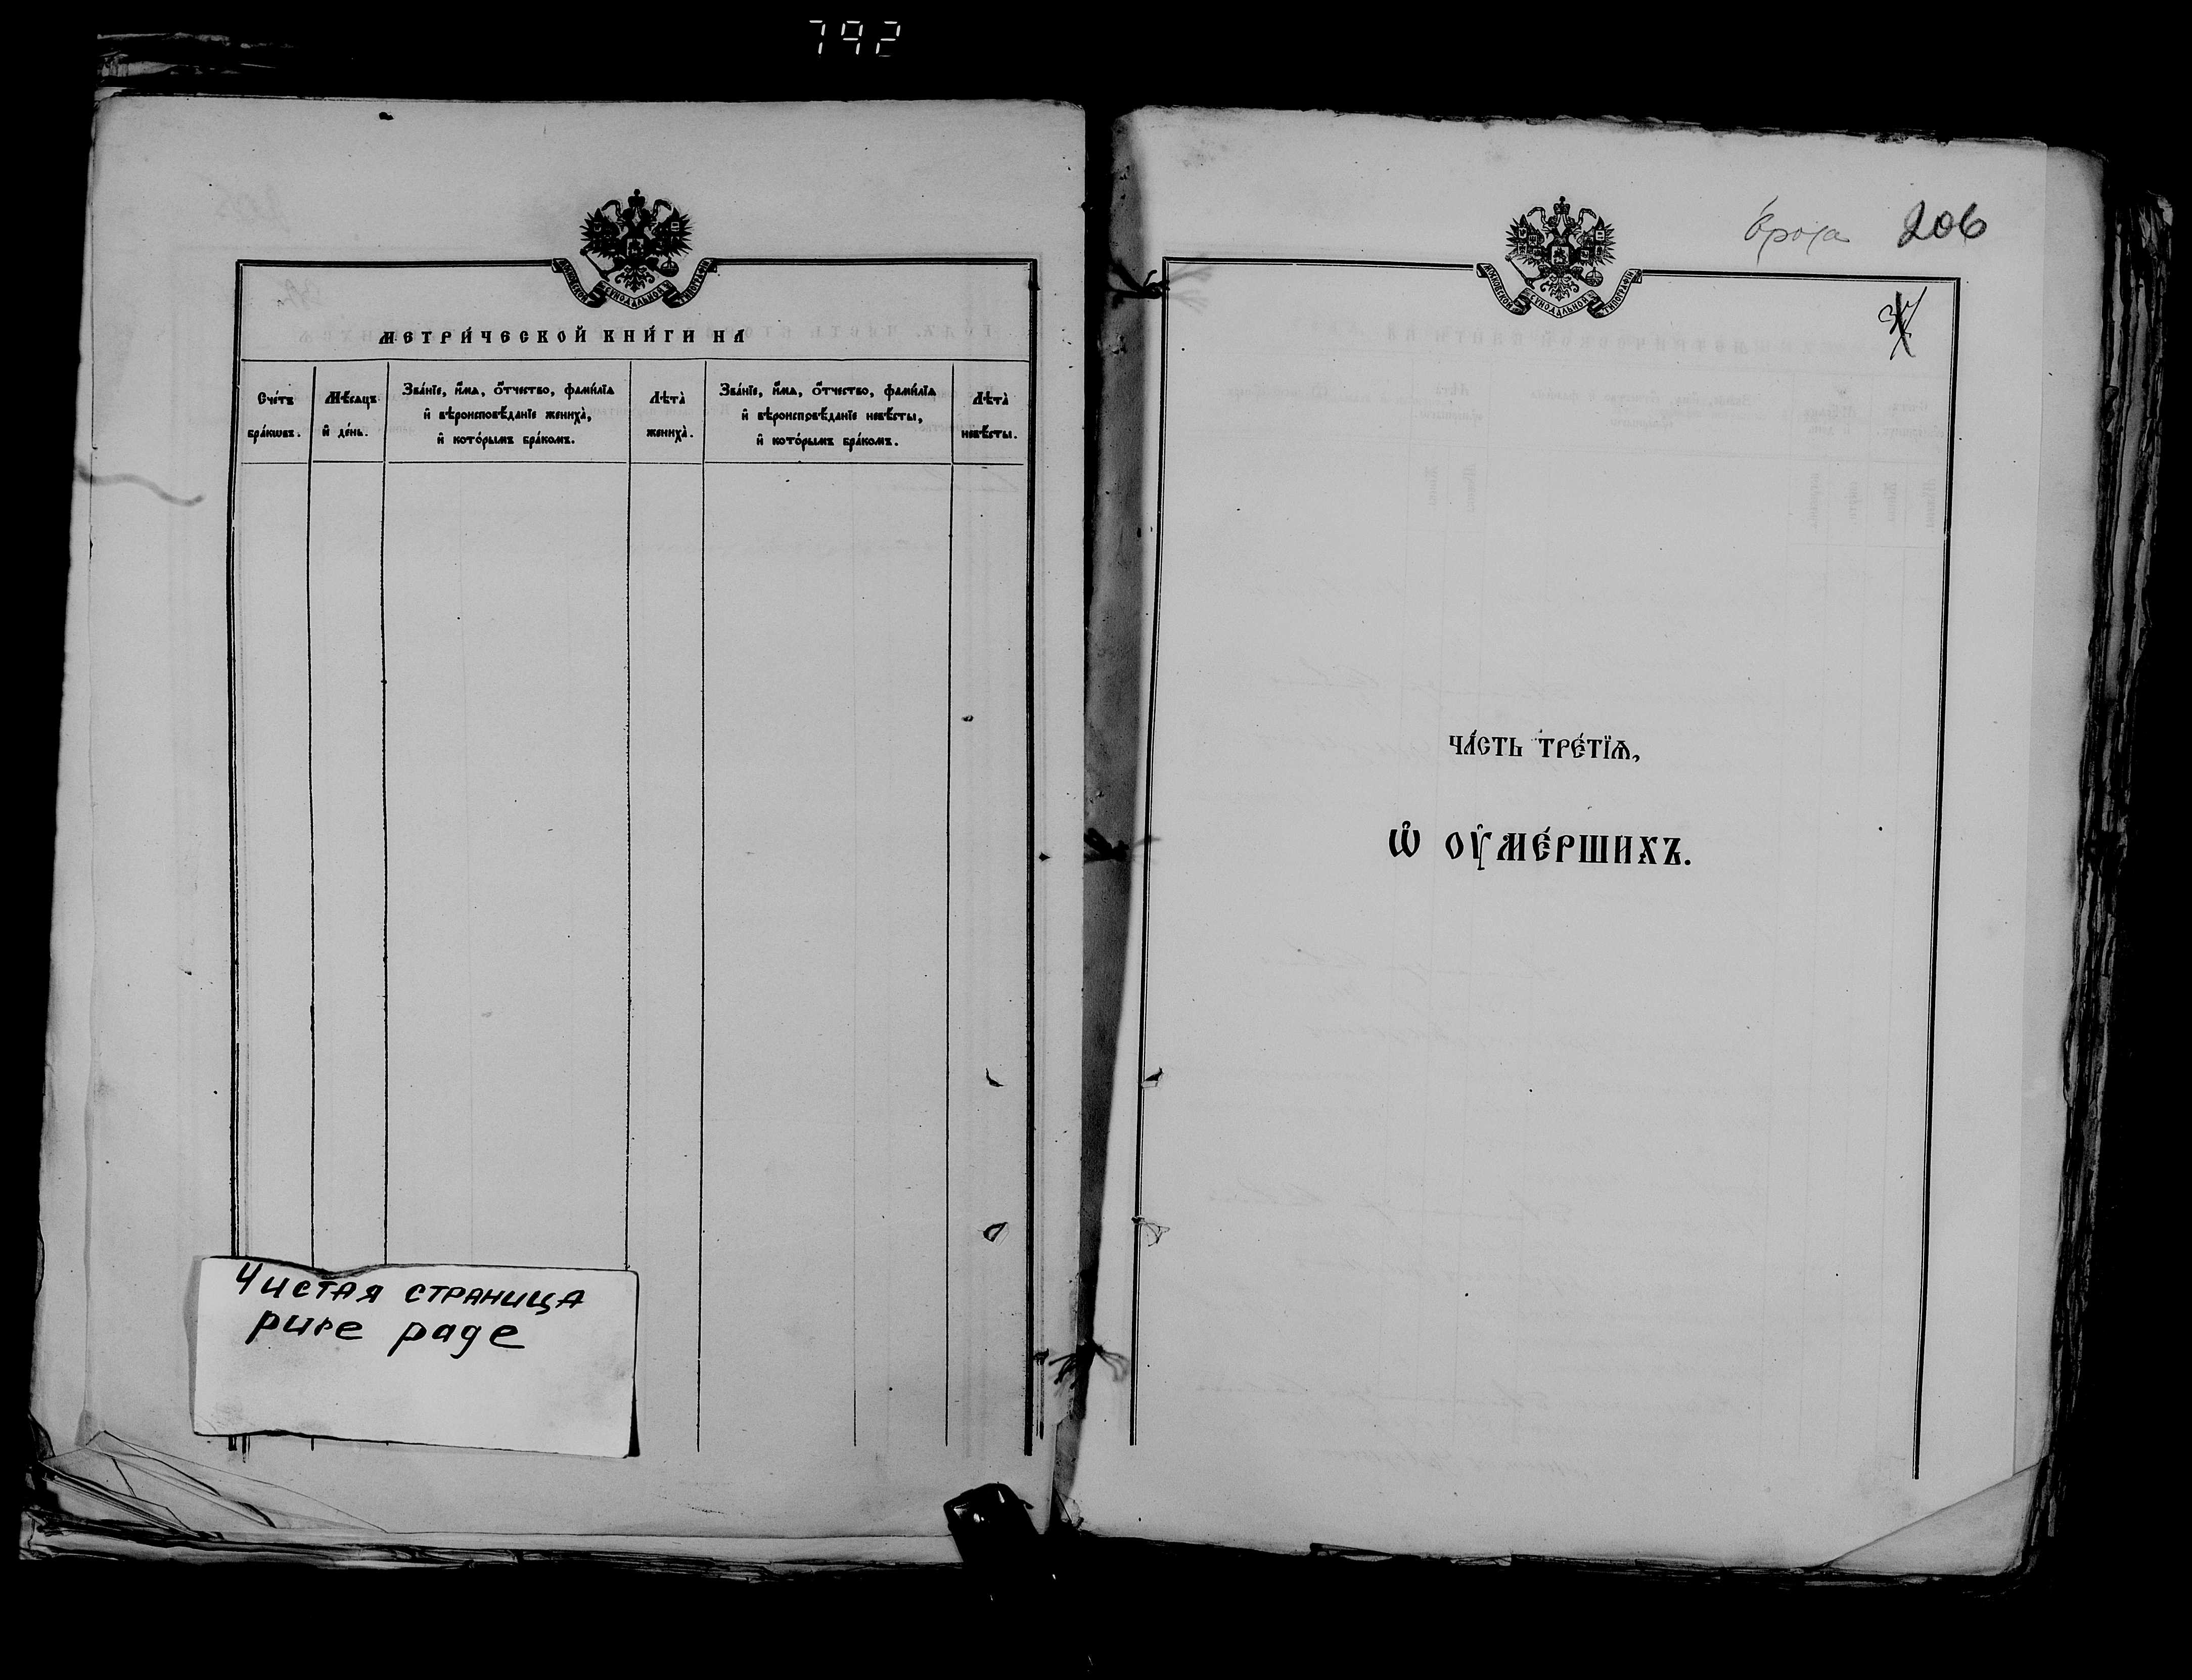 792
МОСКОВСКОЙ СѴНОДАЛЬНОЙ ТИПОГРАФІИ
МЕТРИ́ЧЕСКОЙ КНИ́ГИ НА
Сче́тъ бра́кѡвъ.
Мѣ́сѧцъ и҆ де́нь.
Зва́нїе, и҆́мѧ, о҆́тчество, фами́лїѧ
и҆ вѣроисповѣ́данїе жениха̀,
и҆ кото́рымъ бра́комъ.
Лѣта̀ жениха̀.
Зва́нїе, и҆́мѧ, о҆́тчество, фами́лїѧ
и҆ вѣроисповѣ́данїе невѣ́сты,
и҆ кото́рымъ бра́комъ.
Лѣта̀ невѣ́сты.
Чистая страница
pure page
206
МОСКОВСКОЙ СѴНОДАЛЬНОЙ ТИПОГРАФІИ
ЧА́СТЬ ТРЕ́ТЇѦ,
Ѡ҆ ОУ҆МЕ́РШИХЪ.